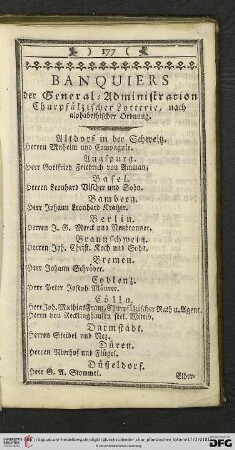 ) 177 (
BANQUIERS
der General-Administration
Churpfälzischer Lotterie, nach
alphabethischer Ordnung.
Altdorf in der Schweitz.
Herren und Compagnie.
Augspurg.
Herr Gottfried Friedrich von
Basel.
Herren Leonhard Vischer und Sohn.
Bamberg.
Herr Johann Leonhard
Berlin.
Herren J. G. Merck und Neubronner.
Braunschweig.
Herren Joh. Christ. Koch und Sohn.
Bremen.
Herr Johann Schröder.
Coblenz.
Herr Peter Joseph Maurer.
Cölln.
Herr Joh. Mathias Franz, Churpfälzischer Rath u. Agent.
Herren von Recklinghausen seel. Wittib.
Darmstadt.
Herren Steidel und
Düren.
Herren und Flügel.
Düsseldorf.
Herr G. A. Stommel.
Elber-
DFG